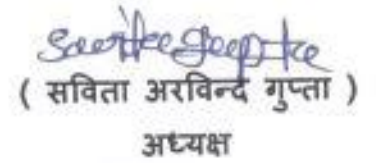 Savita Gupta
( सविता अरविन्द गुप्ता )
अध्यक्ष